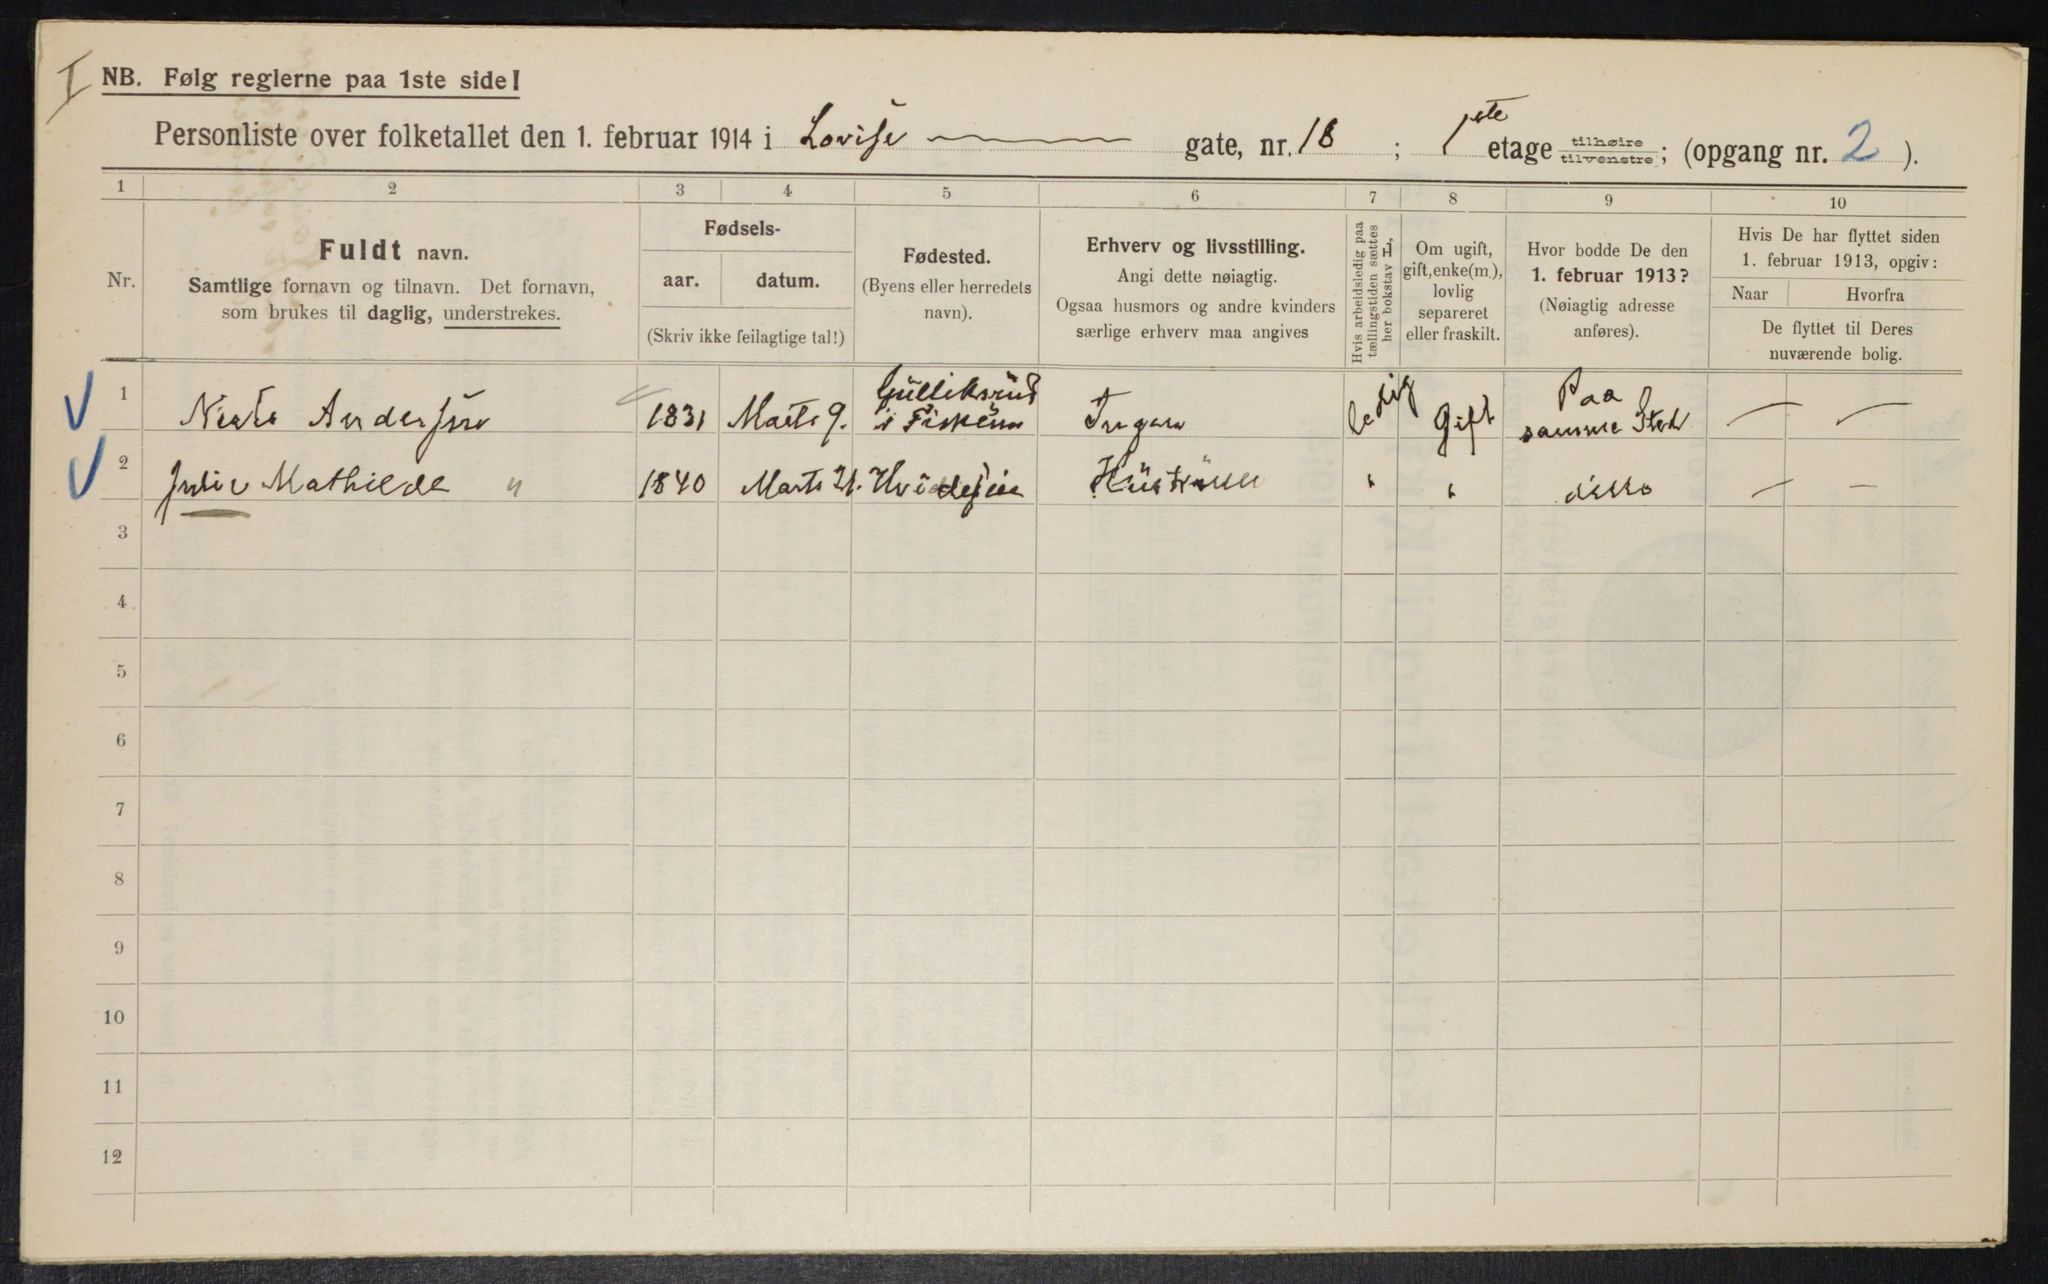 I
NB. Følg reglerne paa 1ste side!
Personliste over folketallet den 1. februar 1914 i Lovise gate, nr. 18 ; 1ste etage tilhøire tilvenstre; (opgang nr. 2 ).
1 2 3 4 5 6 7 8 9 10
Nr.
Fuldt navn.
Samtlige fornavn og tilnavn. Det fornavn,
som brukes til daglig, understrekes.
Fødsels-
aar. datum.
(Skriv ikke feilagtige tal!)
Fødested.
(Byens eller herredets
navn).
Erhverv og livsstilling.
Angi dette nøiagtig.
Ogsaa husmors og andre kvinders
særlige erhverv maa angives
Hvis arbeidsledig paa
tællingstiden sættes
her bokstav L.
Om ugift,
gift, enke(m.),
lovlig
separeret
eller fraskilt.
Hvor bodde De den
1. februar 1913?
(Nøiagtig adresse
anføres).
Hvis De har flyttet siden
1. februar 1913, opgiv:
Naar Hvorfra
De flyttet til Deres
nuværende bolig.
1 Niels Anderssen 1831 Marts 9. Gulliksrud i Fiskum Ingen ledig Gift Paa samme Sted — —
2 Julie Mathilde " 1840 Marts 21. Hvidesjøe Hüstrüe " " ditto — —
3
4
5
6
7
8
9
10
11
12